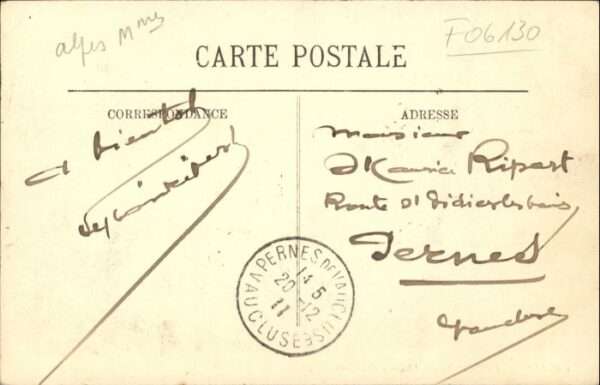 alpes Mmes
F06130
CARTE POSTALE
CORRESPONDANCE
ADRESSE
A bientot
Monsieur
Maurice Ripart
Route St Didier les bains
Pernes
Vaucluse
PERNES DE VAUCLUSE
14 5
20 -12
11
VAUCLUSE